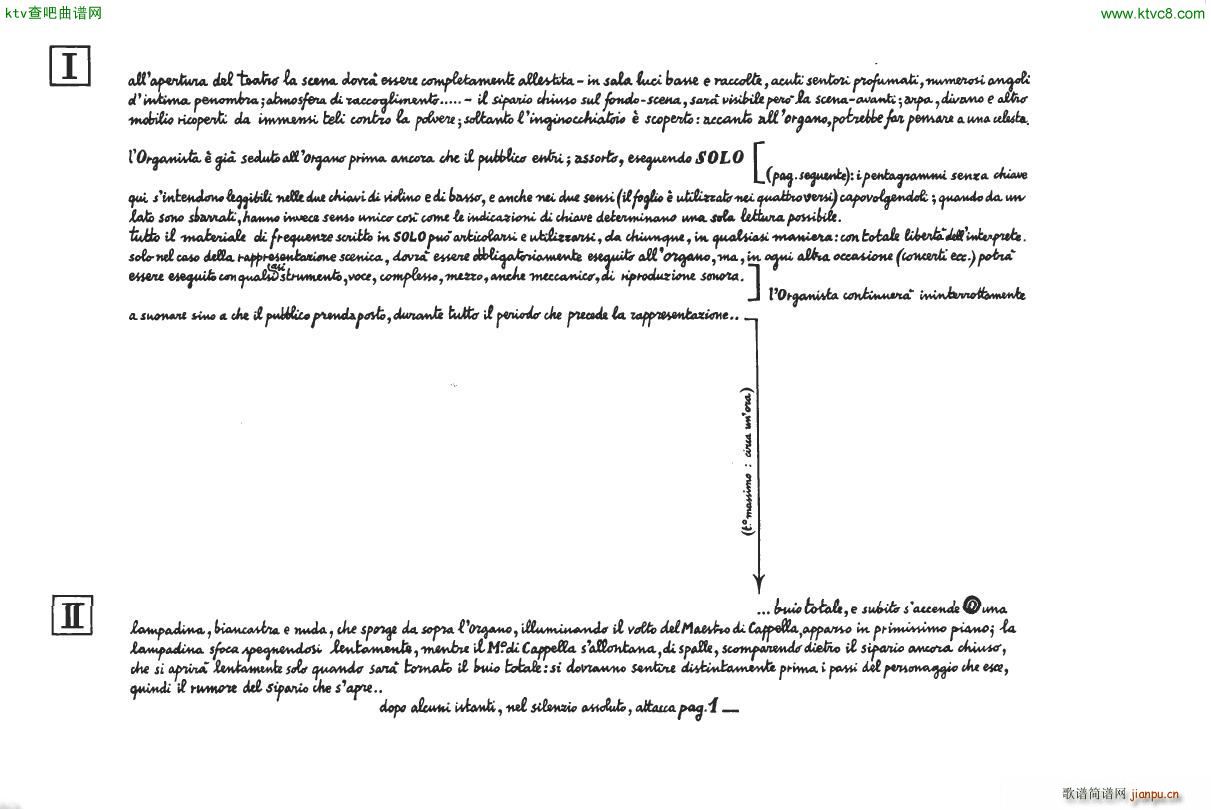 ktv查吧曲谱网
www.ktvc8.com
I
all'apertura del teatro la scena dovrà essere completamente allestita – in sala luci basse e raccolte, acuti sentori profumati, numerosi angoli
d'intima penombra; atmosfera di raccoglimento..... – il sipario chiuso sul fondo-scena, sarà visibile però la scena-avanti; arpa, divano e altro
mobilio ricoperti da immensi teli contro la polvere; soltanto l'inginocchiatoio è scoperto: accanto all'organo, potrebbe far pensare a una celesta.
l'Organista è già seduto all'organo prima ancora che il pubblico entri; assorto, eseguendo SOLO
(pag. seguente): i pentagrammi senza chiave
qui s'intendono leggibili nelle due chiavi di violino e di basso, e anche nei due sensi (il foglio è utilizzato nei quattro versi) capovolgendoli; quando da un
lato sono sbarrati, hanno invece senso unico così come le indicazioni di chiave determinano una sola lettura possibile.
tutto il materiale di frequenze scritto in SOLO può articolarsi e utilizzarsi, da chiunque, in qualsiasi maniera: con totale libertà dell'interprete.
solo nel caso della rappresentazione scenica, dovrà essere obbligatoriamente eseguito all'organo, ma, in ogni altra occasione (concerti ecc.) potrà
essere eseguito con qualsiasi strumento, voce, complesso, mezzo, anche meccanico, di riproduzione sonora.
l'Organista continuerà ininterrottamente
a suonare sino a che il pubblico prenda posto, durante tutto il periodo che precede la rappresentazione..
(t.º massimo : circa un'ora)
II
... buio totale, e subito s'accende una
lampadina, biancastra e nuda, che sporge da sopra l'organo, illuminando il volto del Maestro di Cappella, apparso in primissimo piano; la
lampadina sfoca spegnendosi lentamente, mentre il Mº di Cappella s'allontana, di spalle, scomparendo dietro il sipario ancora chiuso,
che si aprirà lentamente solo quando sarà tornato il buio totale: si dovranno sentire distintamente prima i passi del personaggio che esce,
quindi il rumore del sipario che s'apre..
dopo alcuni istanti, nel silenzio assoluto, attacca pag. 1 —
歌谱简谱网 jianpu.cn